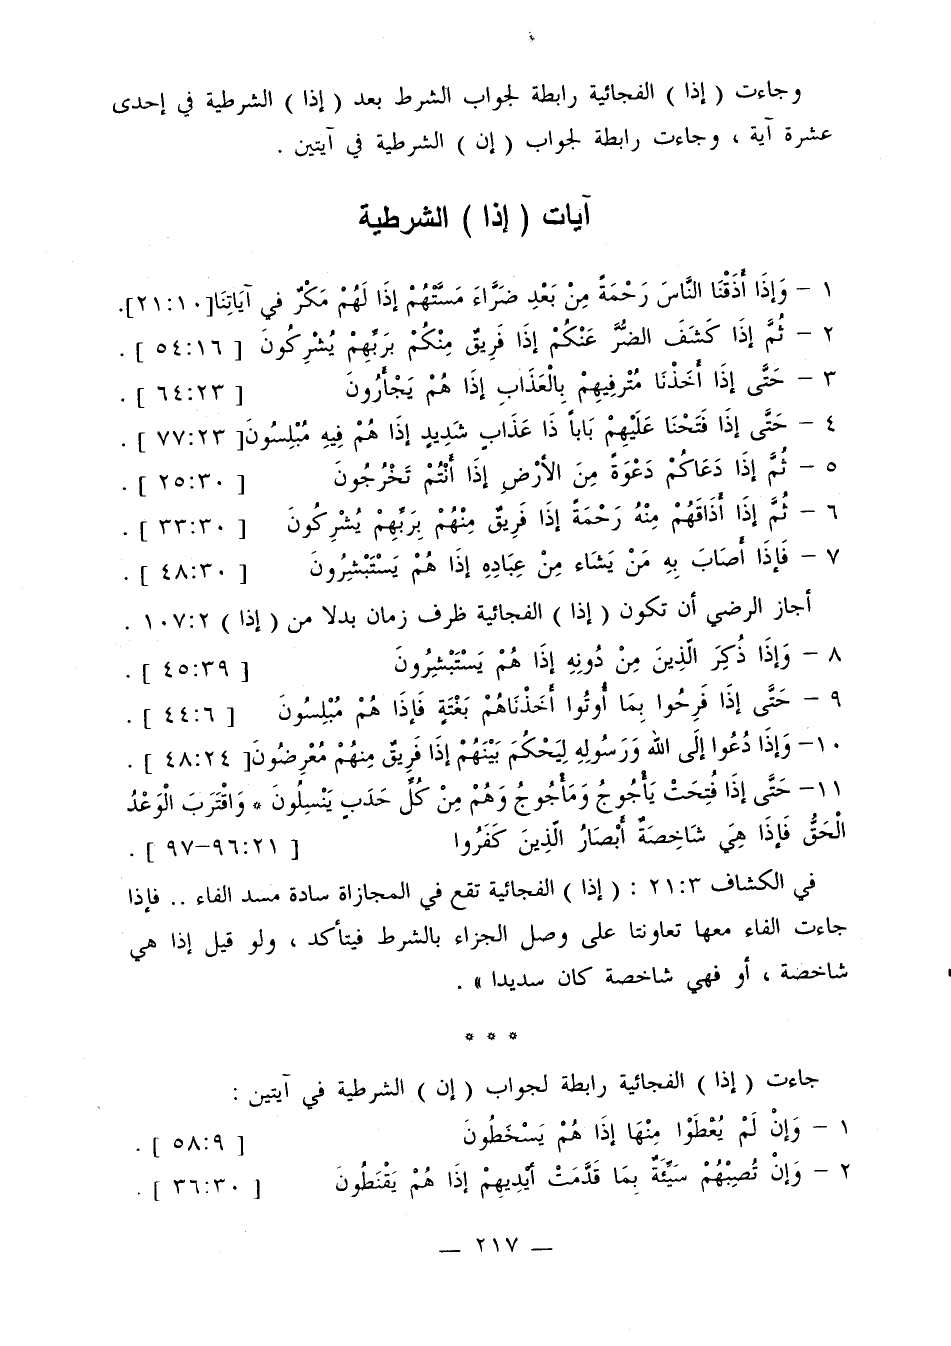 وجاءت ( إذا ) الفجائية رابطة لجواب الشرط بعد ( إذا ) الشرطية في إحدى
عشرة آية ، وجاءت رابطة لجواب ( إن ) الشرطية في آيتين .
آيات ( إذا ) الشرطية
١ – وَإِذَا أَذَقْنَا النَّاسَ رَحْمَةً مِنْ بَعْدِ ضَرَّاءَ مَسَّتْهُمْ إِذَا لَهُمْ مَكْرٌ في آيَاتِنَا[٢١:١٠].
٢ – ثُمَّ إِذَا كَشَفَ الضُّرَّ عَنْكُمْ إِذَا فَرِيقٌ مِنْكُمْ بِرَبِّهِمْ يُشْرِكُونَ [ ٥٤:١٦ ] .
٣ – حَتَّى إِذَا أَخَذْنَا مُتْرَفِيهِمْ بِالْعَذَابِ إِذَا هُمْ يَجْأَرُونَ [ ٦٤:٢٣ ] .
٤ – حَتَّى إِذَا فَتَحْنَا عَلَيْهِمْ بَاباً ذَا عَذَابٍ شَدِيدٍ إِذَا هُمْ فِيهِ مُبْلِسُونَ[ ٧٧:٢٣ ] .
٥ – ثُمَّ إِذَا دَعَاكُمْ دَعْوَةً مِنَ الأَرْضِ إِذَا أَنْتُمْ تَخْرُجُونَ [ ٢٥:٣٠ ] .
٦ – ثُمَّ إِذَا أَذَاقَهُمْ مِنْهُ رَحْمَةً إِذَا فَرِيقٌ مِنْهُمْ بِرَبِّهِمْ يُشْرِكُونَ [ ٣٣:٣٠ ] .
٧ – فَإِذَا أَصَابَ بِهِ مَنْ يَشَاء مِنْ عِبَادِهِ إِذَا هُمْ يَسْتَبْشِرُونَ [ ٤٨:٣٠ ] .
أجاز الرضي أن تكون ( إذا ) الفجائية ظرف زمان بدلا من ( إذا ) ١٠٧:٢ .
٨ – وَإِذَا ذُكِرَ الَّذِينَ مِنْ دُونِهِ إِذَا هُمْ يَسْتَبْشِرُونَ [ ٤٥:٣٩ ] .
٩ – حَتَّى إِذَا فَرِحُوا بِمَا أُوتُوا أَخَذْنَاهُمْ بَغْتَةٍ فَإِذَا هُمْ مُبْلِسُونَ [ ٤٤:٦ ] .
١٠– وَإِذَا دُعُوا إِلَى اللهِ وَرَسُولِهِ لِيَحْكُمَ بَيْنَهُمْ إِذَا فَرِيقٌ مِنهُمْ مُعْرِضُونَ[ ٤٨:٢٤ ] .
١١– حَتَّى إِذَا فُتِحَتْ يَأْجُوجُ وَمَأْجُوجُ وَهُمْ مِنْ كُلِّ حَدَبٍ يَنْسِلُونَ * وَاقْتَرَبَ الْوَعْدُ
الْحَقُّ فَإِذَا هِيَ شَاخِصَةٌ أَبْصَارُ الَّذِينَ كَفَرُوا [ ٩٦:٢١–٩٧ ] .
في الكشاف ٢١:٣ : ( إذا ) الفجائية تقع في المجازاة سادة مسد الفاء .. فإذا
جاءت الفاء معها تعاونتا على وصل الجزاء بالشرط فيتأكد ، ولو قيل إذا هي
شاخصة ، أو فهي شاخصة كان سديدا » .
* * *
جاءت ( إذا ) الفجائية رابطة لجواب ( إن ) الشرطية في آيتين :
١ – وَإِنْ لَمْ يُعْطَوْا مِنْهَا إِذَا هُمْ يَسْخَطُونَ [ ٥٨:٩ ] .
٢ – وَإِنْ تُصِبْهُمْ سَيِّئَةٌ بِمَا قَدَّمَتْ أَيْدِيهِمْ إِذَا هُمْ يَقْنَطُونَ [ ٣٦:٣٠ ] .
— ٢١٧ —